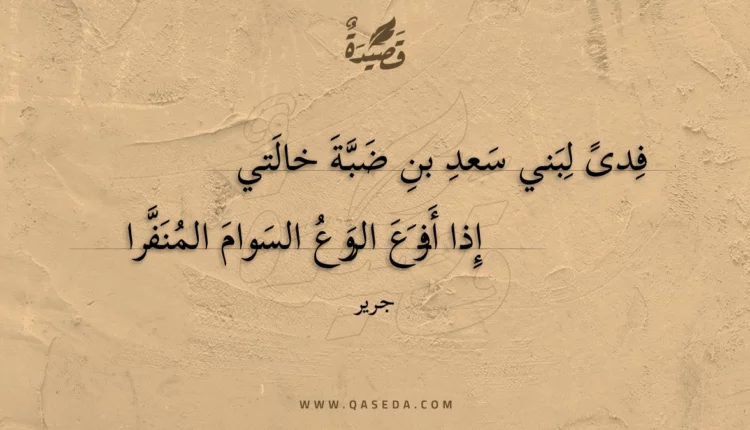 قَصيدَةٌ
فِدىً لِبَني سَعدِ بنِ ضَبَّةَ خالَتي
إِذا السَوامَ المُنَفَّرا
جرير
WWW.QASEDA.COM